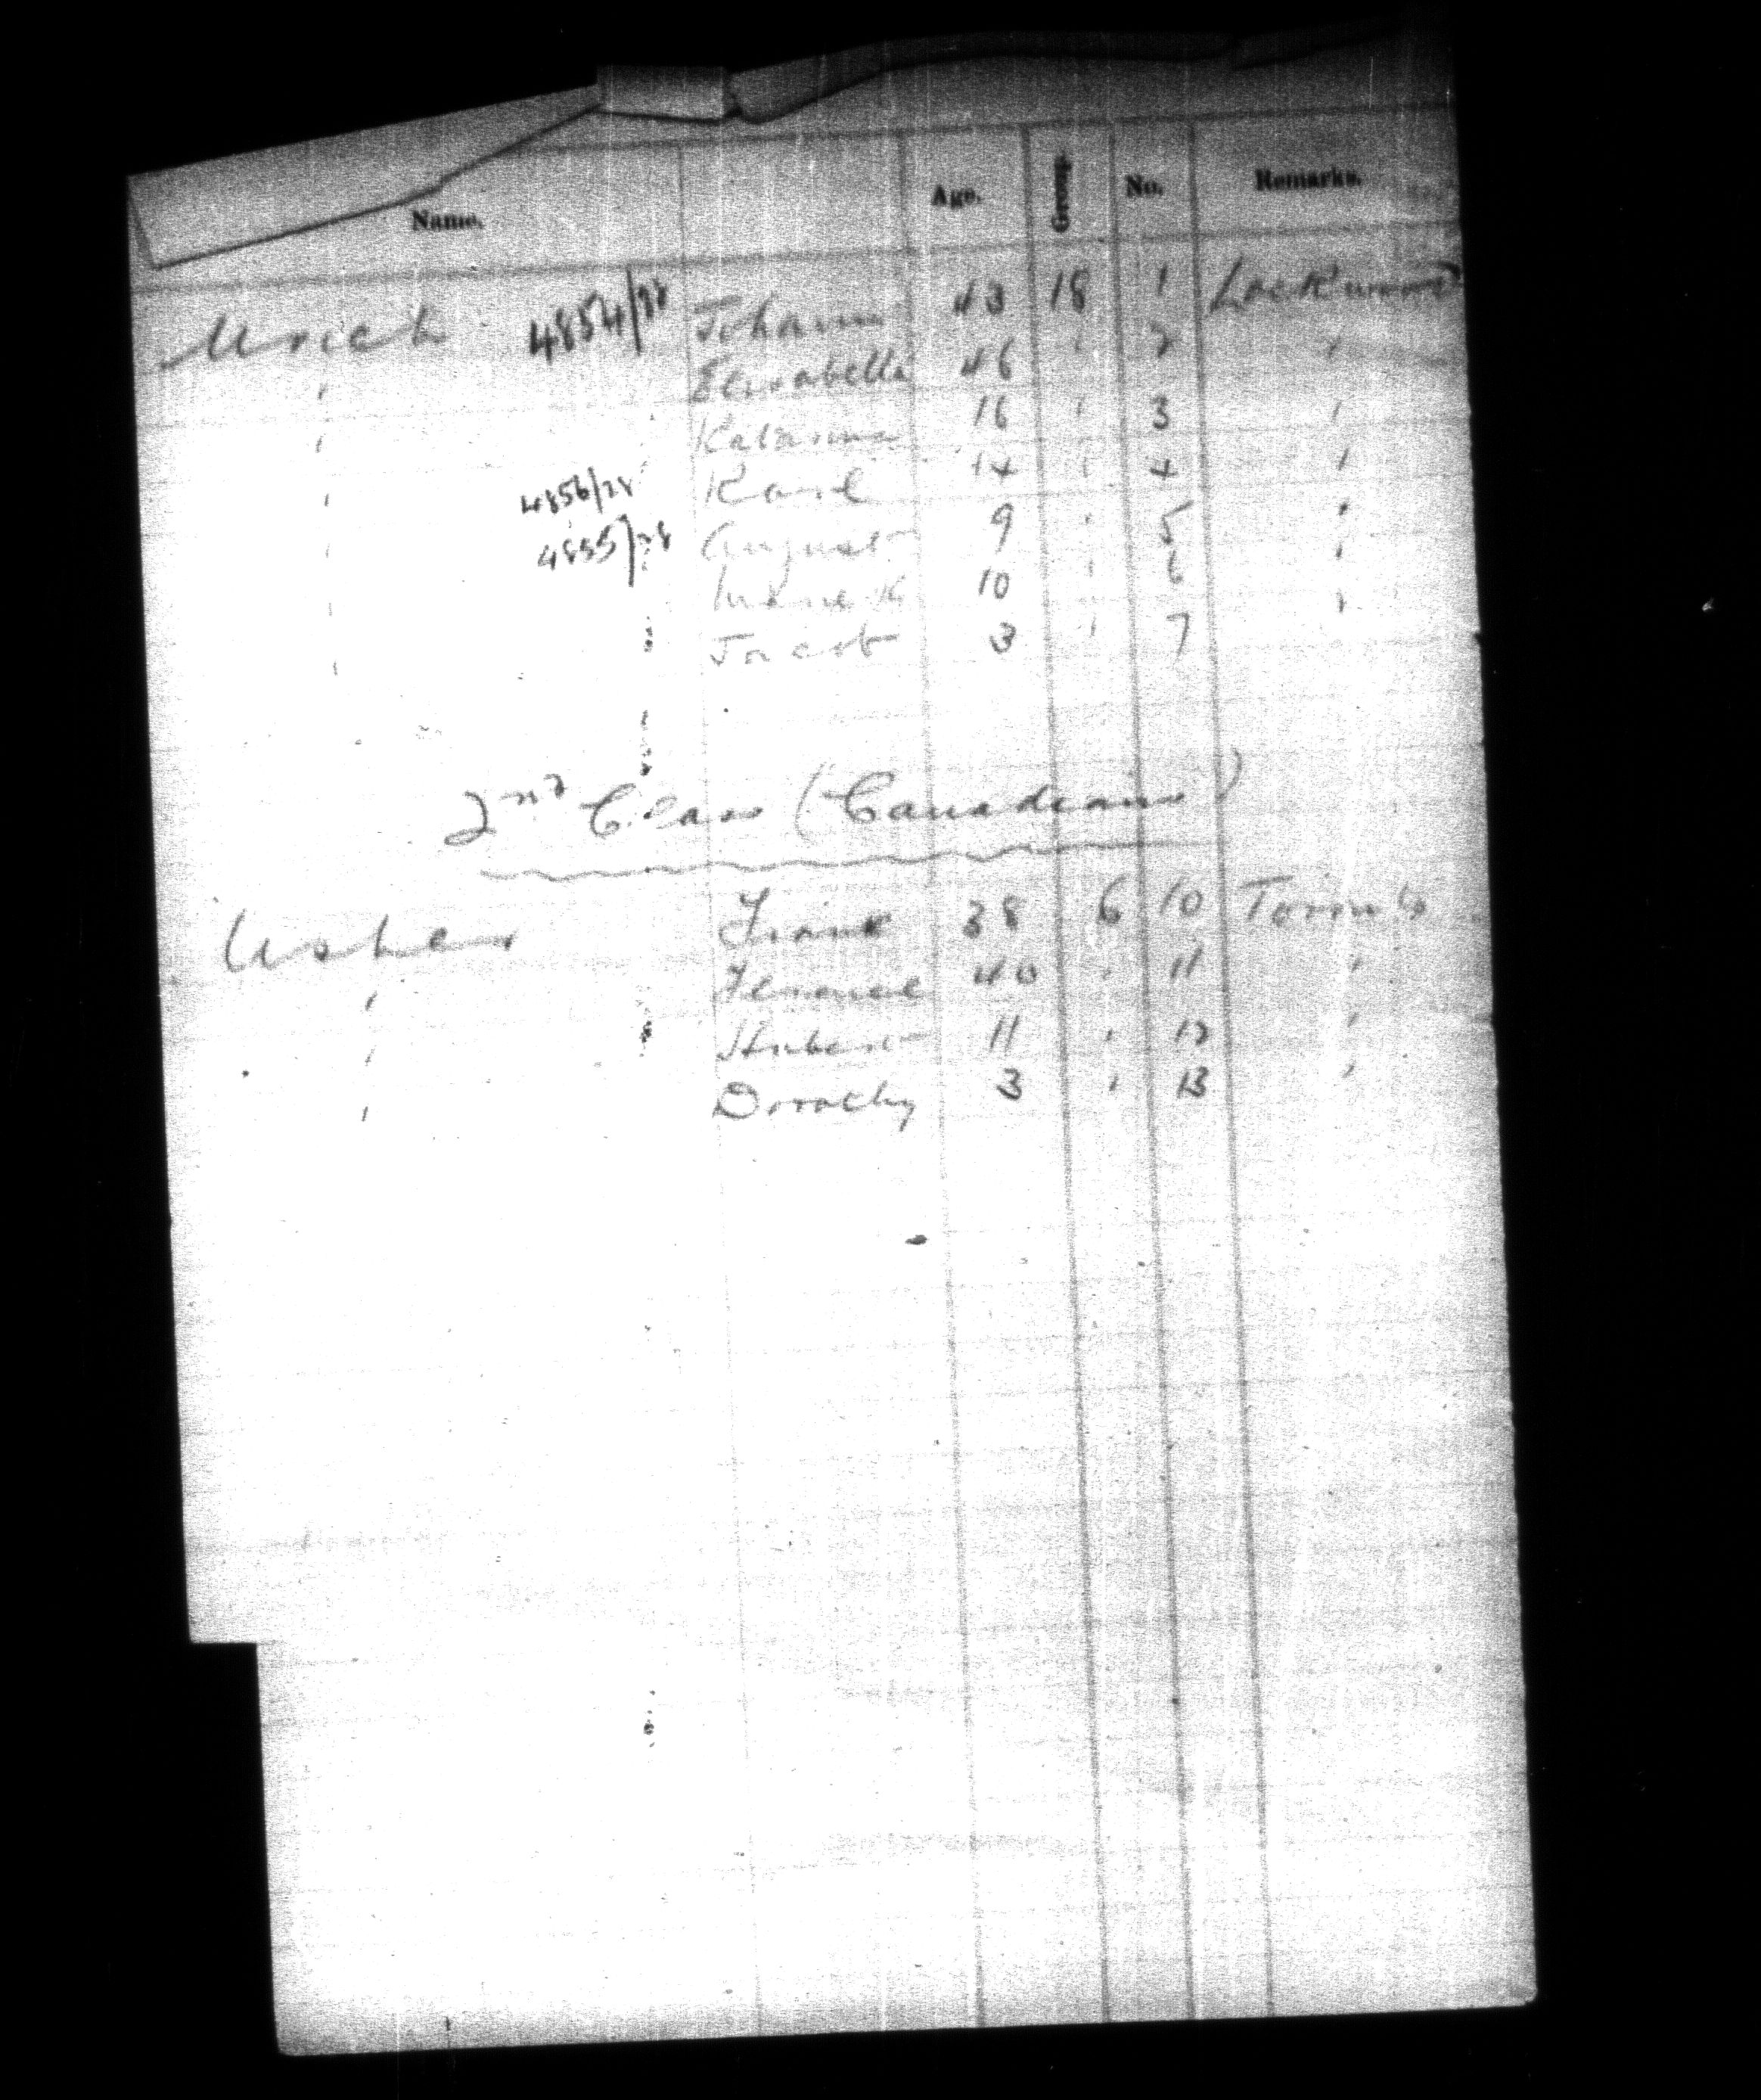 Name. Age. Group No. Remarks.
Ulrich 4854/28 Johann 43 18 1 Lockwood
" Elisabetta 46 " 2 "
" Katarina 16 " 3 "
" 4856/28 Karl 14 " 4 "
" 4855/28 August 9 " 5 "
" 10 " 6 "
" Jacob 3 " 7 "
2nd Class (Canadians)
Usher Frank 38 6 10 Toronto
" Florence 40 " 11 "
" Hubert 11 " 12 "
" Dorothy 3 " 13 "